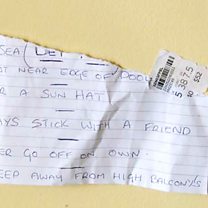 SEA
OT NEAR EDGE OF POOL
R A SUN HAT
AYS STICK WITH A FRIEND
ER GO OFF ON OWN.
EEP AWAY FROM HIGH BALCONYS